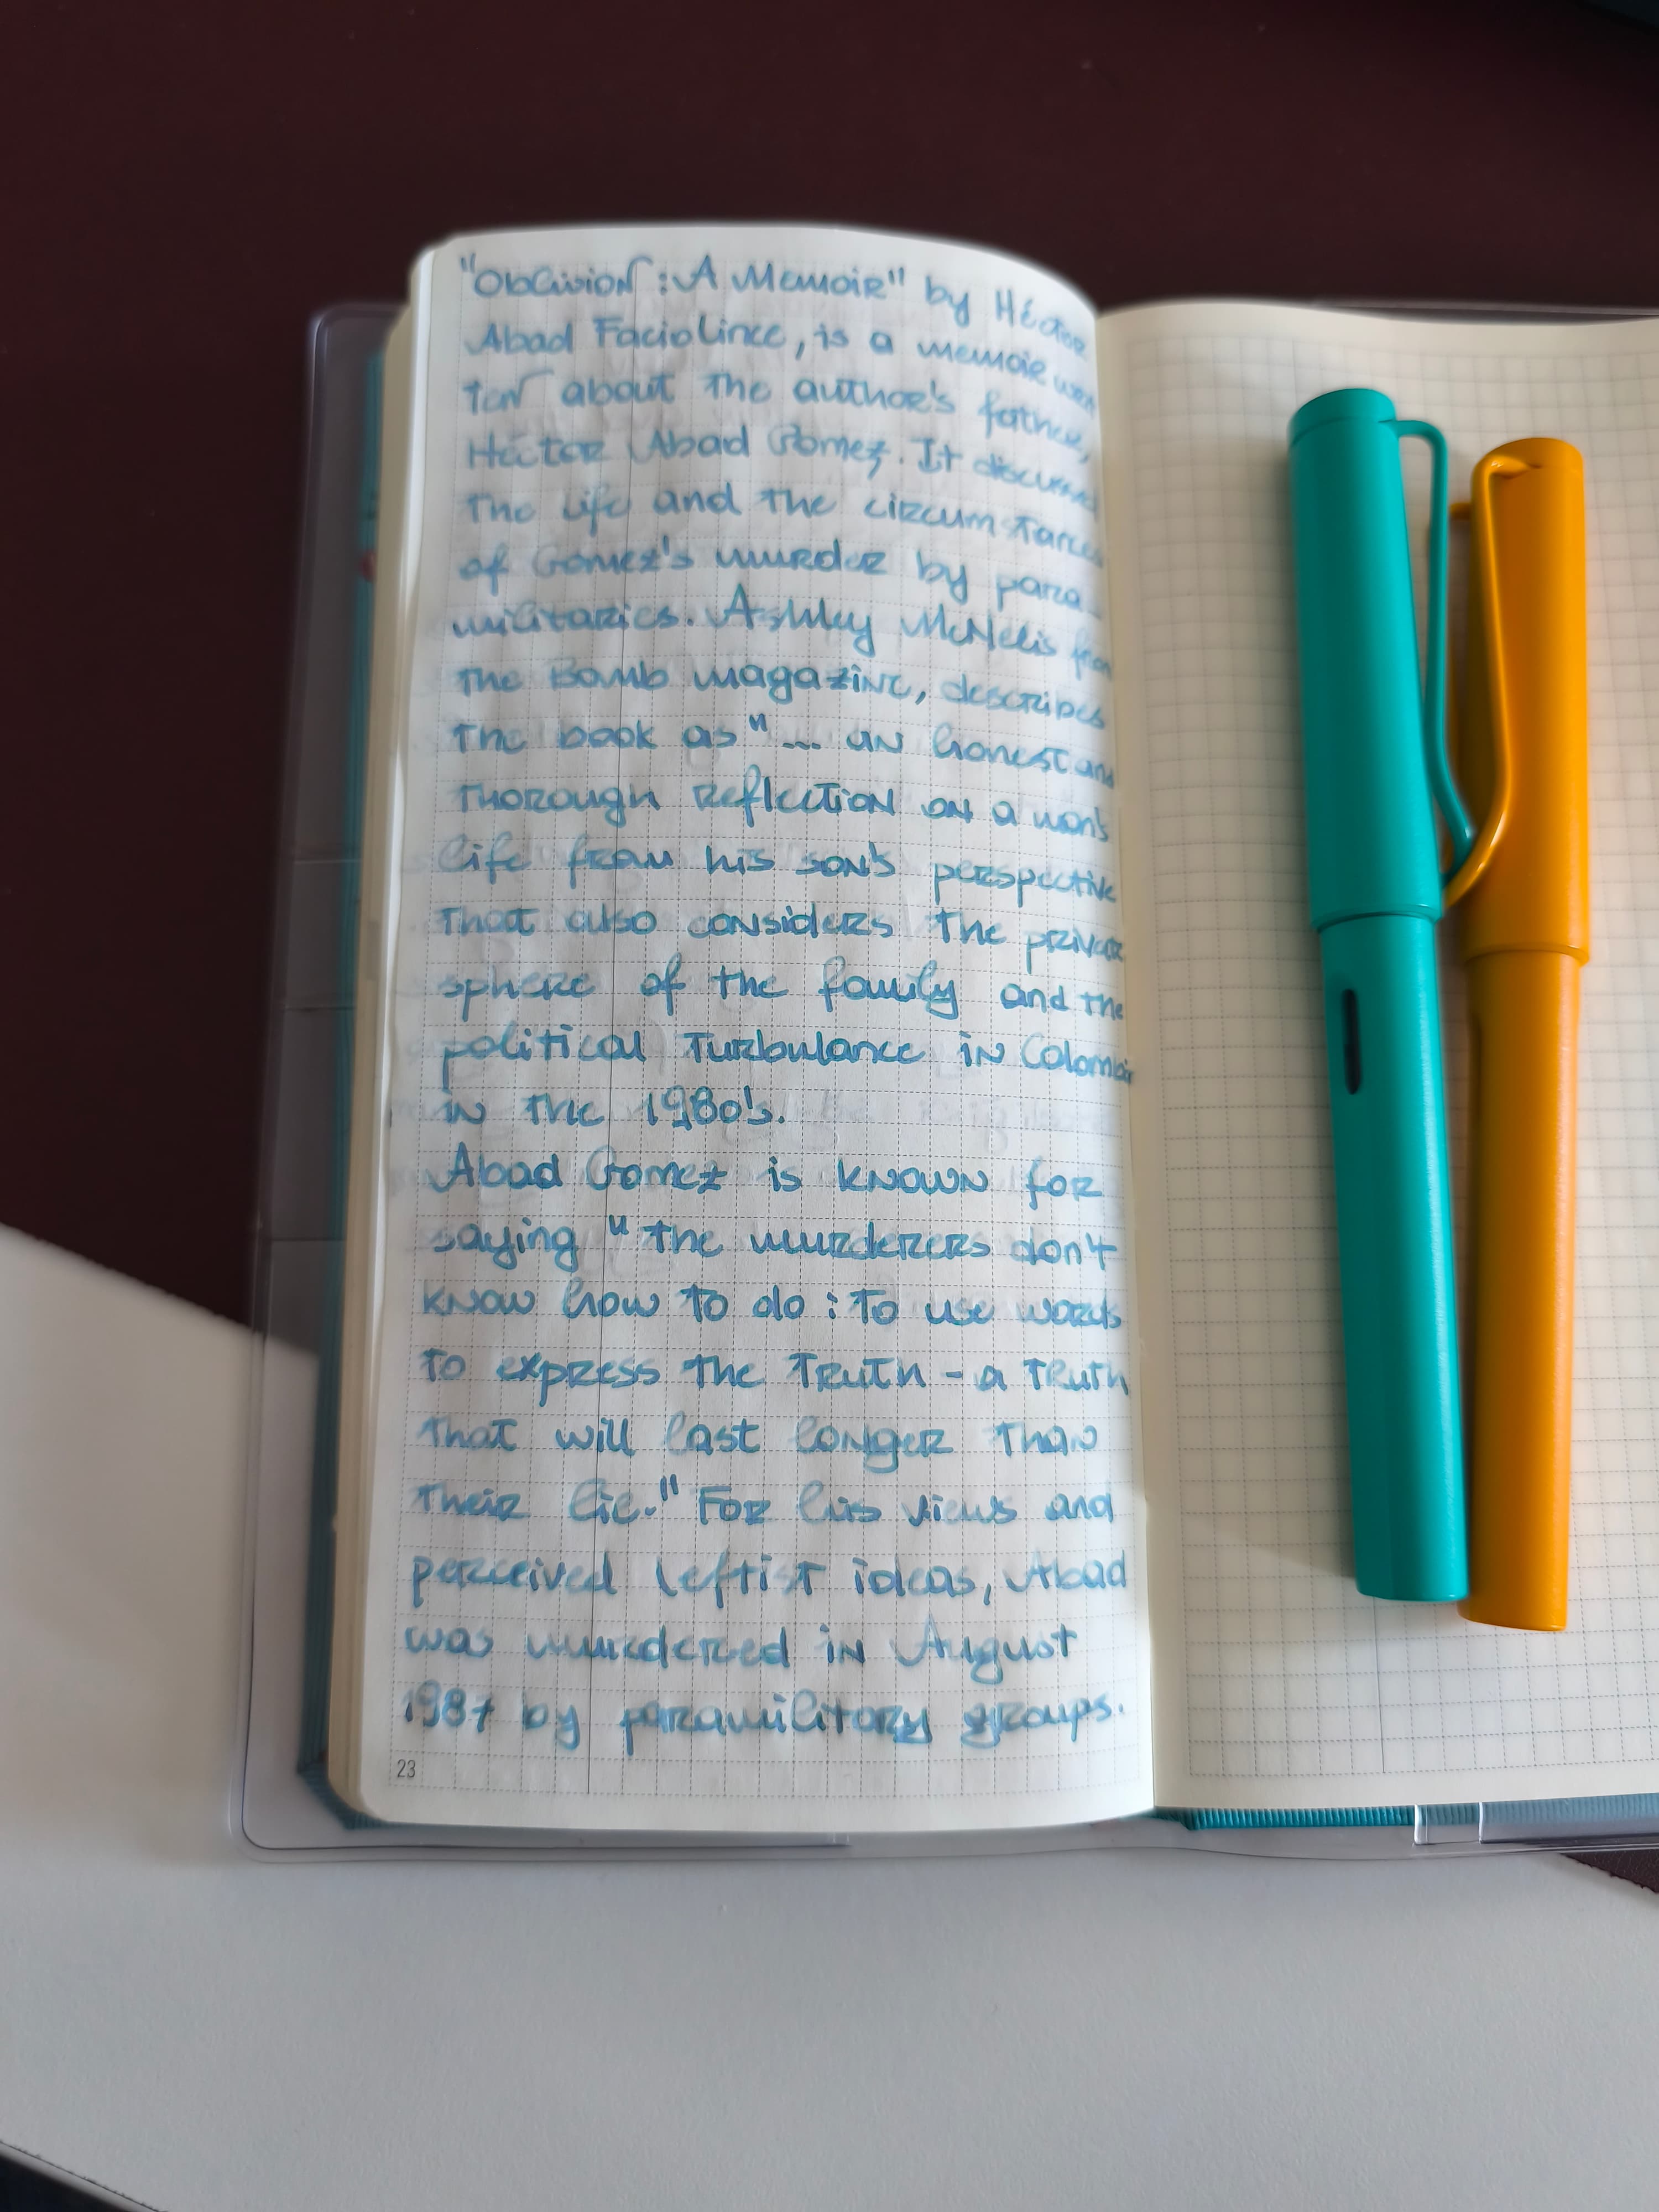 "Oblivion: A Memoir" by Héctor
Abad Faciolince, is a memoir writ
ten about the author's father,
Héctor Abad Gomez. It discusses
the life and the circumstances
of Gomez's murder by para-
militaries. Ashley McNelis from
the Bomb magazine, describes
the book as "... an honest and
thorough reflection on a man's
life from his son's perspective
that also considers the private
sphere of the family and the
political turbulance in Colombia
in the 1980's.
Abad Gomez is known for
saying "the murderers don't
know how to do: to use words
to express the truth - a truth
that will last longer than
their lie." For his views and
perceived leftist ideas, Abad
was murdered in August
1987 by paramilitary groups.
23